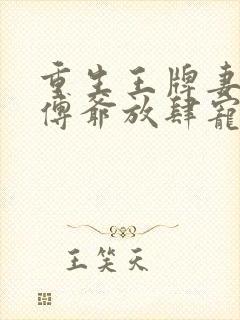 重生王牌妻
傅爺放肆寵
王笑天